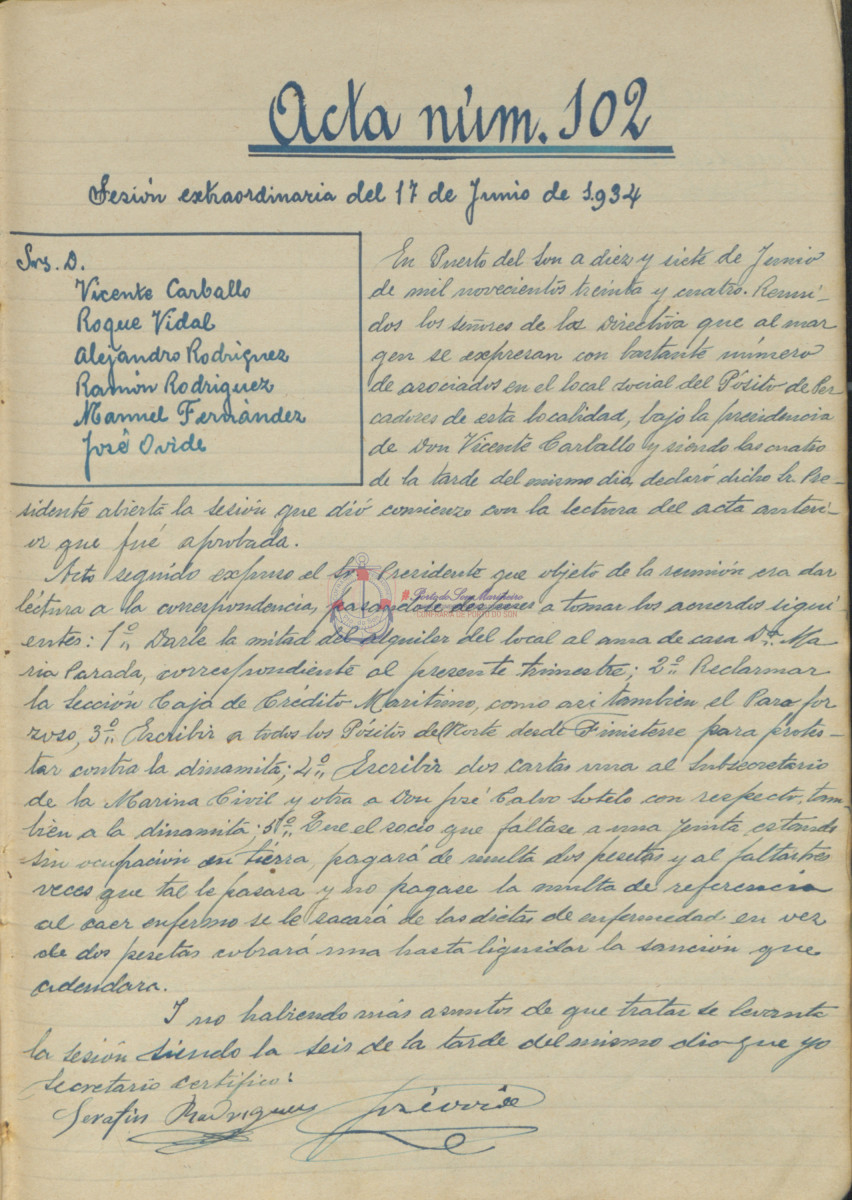 Acta núm. 102
Sesión extraordinaria del 17 de Junio de 1.934
Srs. D.
Vicente Carballo
Roque Vidal
Alejandro Rodríguez
Ramón Rodriguez
Manuel Fernández
José Ovide
En Puerto del Son a diez y siete de Junio
de mil novecientos treinta y cuatro. Reuni-
dos los señores de la Directiva que al mar
gen se expresan con bastante número
de asociados en el local social del Pósito de Pes
cadores de esta localidad, bajo la presidencia
de Don Vicente Carballo y siendo las cuatro
de la tarde del mismo dia, declaró dicho Sr. Pre-
sidente abierta la sesión que dió comienzo con la lectura del acta anteri-
or que fué aprobada.
Acto seguido expuso el Sr. Presidente que objeto de la reunión era dar
léctura a la correspondencia, pasandose despues a tomar los acuerdos sigui-
entes: 1º " Darle la mitad del alquiler del local al ama de casa Dª. Ma-
ria Parada, correspondiente al presente trimestre; 2º " Reclarmar
la Sección Caja de Crédito Maritimo, como asi tambien el Paro for
zoso, 3º " Escribir a todos los Pósitos del Norte desde Finisterre para protes-
tar contra la dinamita; 4º " Escribir dos cartas una al Subsecretario
de la Marina Civil y otra a Don José Calvo Sotelo con respecto, tam-
bien a la dinamita; 5º " Que el socio que faltase a una Junta estando
sin ocupación en tierra, pagará de multa dos pesetas y al faltar tres
veces que tal le pasara y no pagase la multa de referencia
al caer enfermo se le sacará de las dietas de enfermedad en vez
de dos pesetas cobrará una hasta liquidar la sanción que
adendara.
I no habiendo más asuntos de que tratar se levanta
la sesión siendo la seis de la tarde del mismo dia que yo
Secretario certifico:
Serafin Rodriguez José Ovide
Porto do Son Mariñeiro
CONFRARÍA DE PORTO DO SON